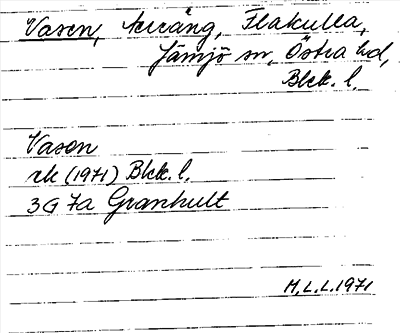 Vasen, äng, Flakulla,
Jämjö sn, Östra hd,
Blek. l.
Vasen
rk (1971) Blek. l.
3G 7a Granhult
M.L.L. 1971